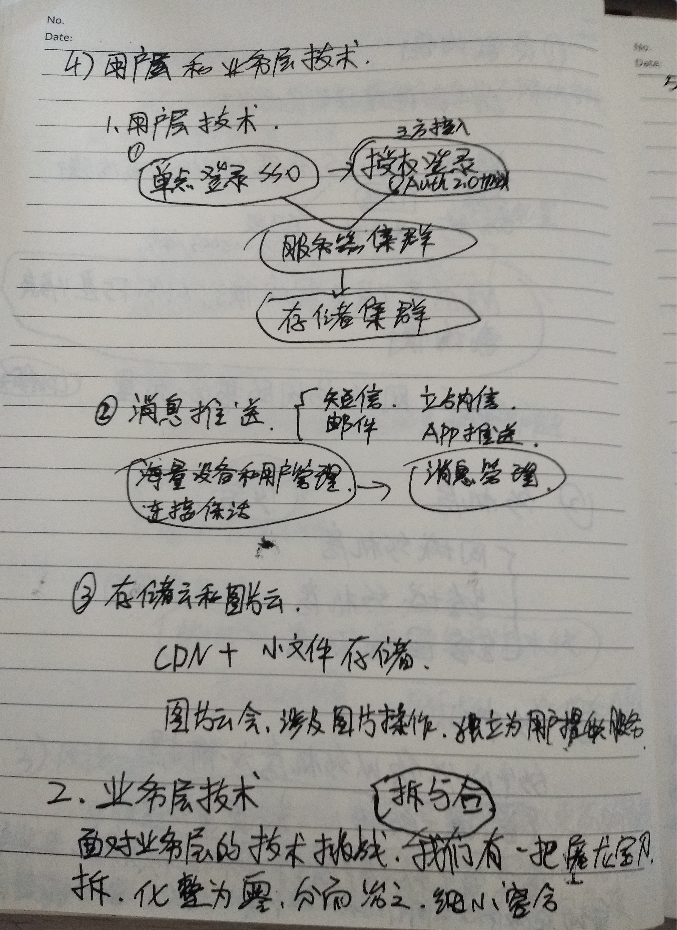 No.
Date:
4) 用户层和业务层技术.
1. 用户层技术.
三方接入
① 单点登录 SSO → 授权登录
OAuth 2.0
服务器集群
存储集群
② 消息推送. 短信. 站内信.
邮件 APP推送.
海量设备和用户管理. → 消息管理.
连接保活
③ 存储云和图片云.
CDN + 小文件存储.
图片云会.涉及图片操作.独立为用户提供服务.
2. 业务层技术 拆与合
面对业务层的技术挑战.我们有一把屠龙宝刀.
拆.化整为零.分而治之.
No.
Date: